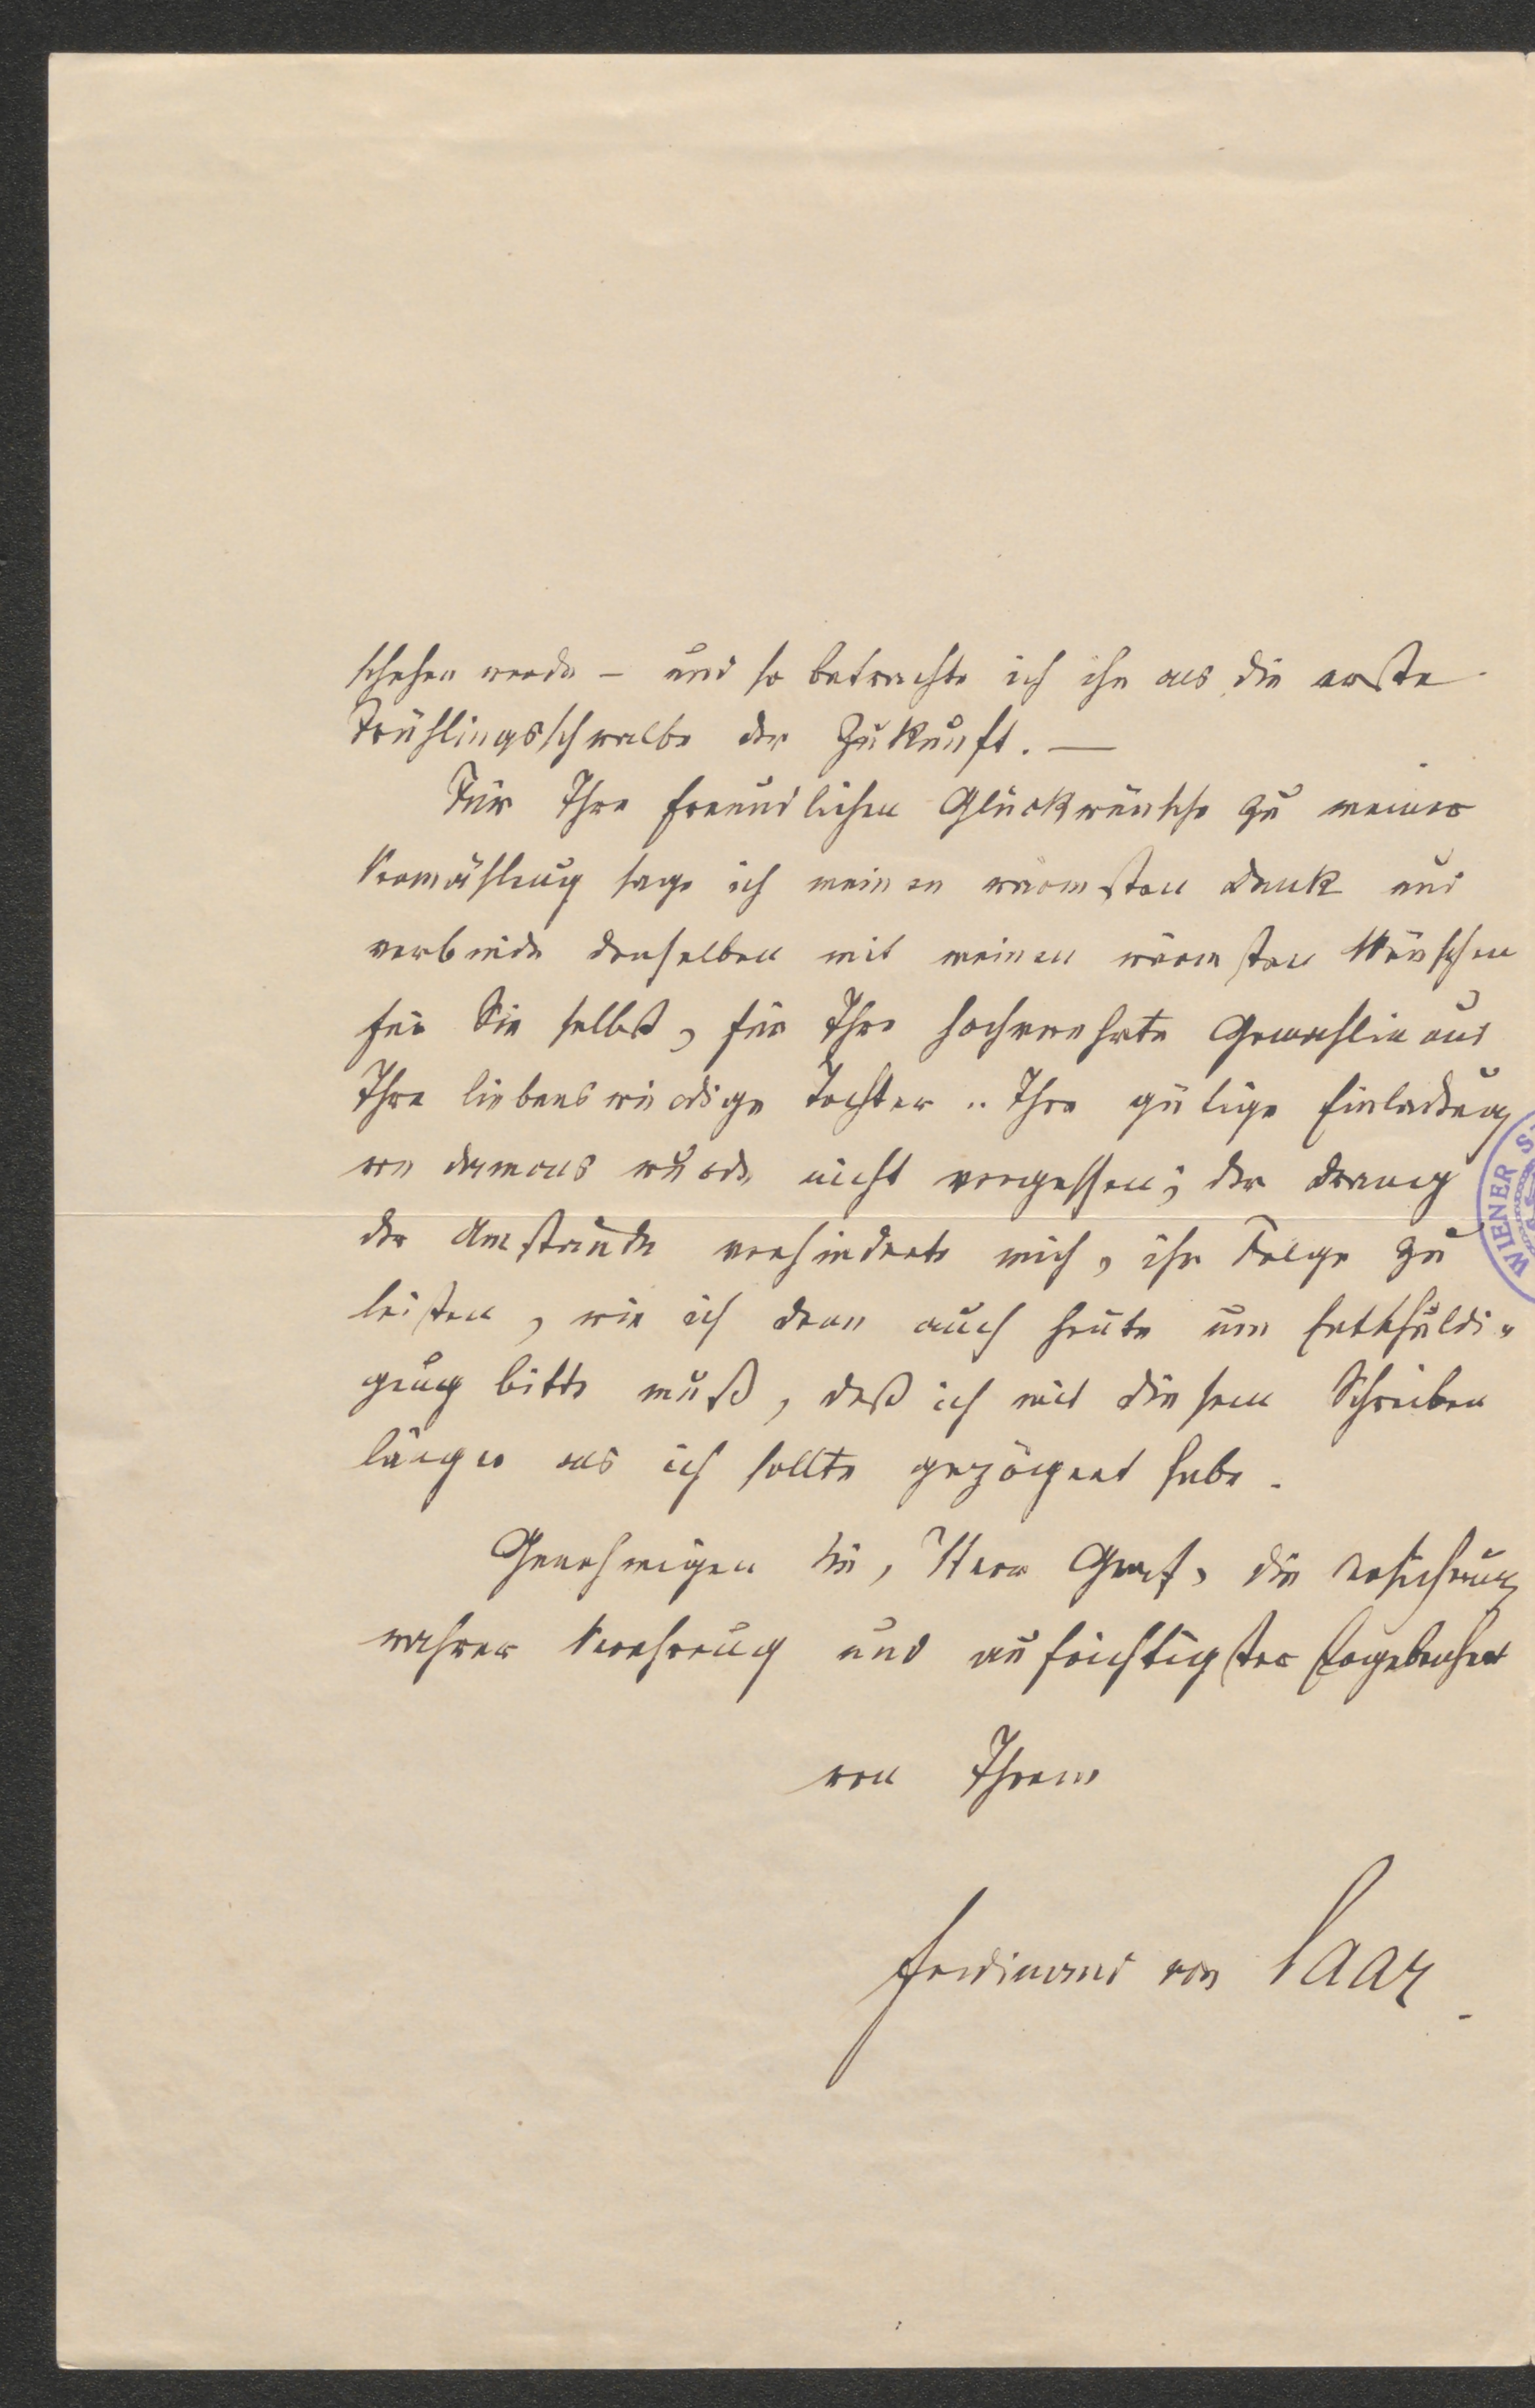 schehen werde – und so betrachte ich ihn als die erste
Frühlingsschwalbe der Zukunft. —
Für Ihre freundlichen Glückwünsche zu meiner
Vermählung sage ich meinen wärmsten Dank und
verbinde denselben mit meinen wärmsten Wünschen
für Sie selbst, für Ihre hochverehrte Gemahlin und
Ihre liebenswürdige Tochter. Ihre gütige Einladung
von damals wurde nicht vergessen; der Drang
der Umstände verhinderte mich, ihr Folge zu
leisten, wie ich denn auch heute um Entschuldi-
gung bitte muß, daß ich mit diesem Schreiben
länger als ich sollte gezögert habe.
Genehmigen Sie, Herr Graf, die Versicherung
wahrer Verehrung und aufrichtigster Ergebenheit
von Ihrem
Ferdinand von Saar.
WIENER